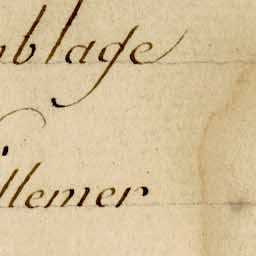 mblage
illemer